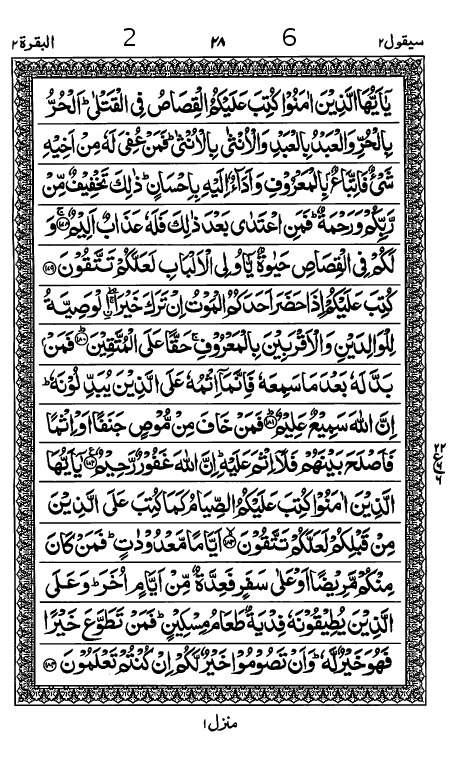 سيقول ٢ 6 ٢٨ 2 البقرة ٢
يٰۤاَيُّهَا الَّذِيْنَ اٰمَنُوْا كُتِبَ عَلَيْكُمُ الْقِصَاصُ فِى الْقَتْلٰىؕ اَلْحُرُّ
بِالْحُرِّ وَالْعَبْدُ بِالْعَبْدِ وَالْاُنْثٰى بِالْاُنْثٰىؕ فَمَنْ عُفِىَ لَهٗ مِنْ اَخِيْهِ
شَىْءٌ فَاتِّبَاعٌۢ بِالْمَعْرُوْفِ وَاَدَآءٌ اِلَيْهِ بِاِحْسَانٍؕ ذٰلِكَ تَخْفِيْفٌ مِّنْ
رَّبِّكُمْ وَرَحْمَةٌؕ فَمَنِ اعْتَدٰى بَعْدَ ذٰلِكَ فَلَهٗ عَذَابٌ اَلِيْمٌۚ﴿۱۷۸﴾ وَ
لَكُمْ فِى الْقِصَاصِ حَيٰوةٌ يّٰۤاُولِى الْاَلْبَابِ لَعَلَّكُمْ تَتَّقُوْنَ﴿۱۷۹﴾
كُتِبَ عَلَيْكُمْ اِذَا حَضَرَ اَحَدَكُمُ الْمَوْتُ اِنْ تَرَكَ خَيْرَاۖۚ اۨلْوَصِيَّةُ
لِلْوَالِدَيْنِ وَالْاَقْرَبِيْنَ بِالْمَعْرُوْفِۚ حَقًّا عَلَى الْمُتَّقِيْنَؕ﴿۱۸۰﴾ فَمَنْۢ
بَدَّلَهٗ بَعْدَ مَا سَمِعَهٗ فَاِنَّمَاۤ اِثْمُهٗ عَلَى الَّذِيْنَ يُبَدِّلُوْنَهٗؕ
اِنَّ اللّٰهَ سَمِيْعٌ عَلِيْمٌؕ﴿۱۸۱﴾ فَمَنْ خَافَ مِنْ مُّوْصٍ جَنَفًا اَوْ اِثْمًا
فَاَصْلَحَ بَيْنَهُمْ فَلَاۤ اِثْمَ عَلَيْهِؕ اِنَّ اللّٰهَ غَفُوْرٌ رَّحِيْمٌ﴿۱۸۲﴾ يٰۤاَيُّهَا
الَّذِيْنَ اٰمَنُوْا كُتِبَ عَلَيْكُمُ الصِّيَامُ كَمَا كُتِبَ عَلَى الَّذِيْنَ
مِنْ قَبْلِكُمْ لَعَلَّكُمْ تَتَّقُوْنَۙ﴿۱۸۳﴾ اَيَّامًا مَّعْدُوْدٰتٍؕ فَمَنْ كَانَ
مِنْكُمْ مَّرِيْضًا اَوْ عَلٰى سَفَرٍ فَعِدَّةٌ مِّنْ اَيَّامٍ اُخَرَؕ وَعَلَى
الَّذِيْنَ يُطِيْقُوْنَهٗ فِدْيَةٌ طَعَامُ مِسْكِيْنٍؕ فَمَنْ تَطَوَّعَ خَيْرًا
فَهُوَ خَيْرٌ لَّهٗؕ وَاَنْ تَصُوْمُوْا خَيْرٌ لَّكُمْ اِنْ كُنْتُمْ تَعْلَمُوْنَ﴿۱۸۴﴾
منزل ١